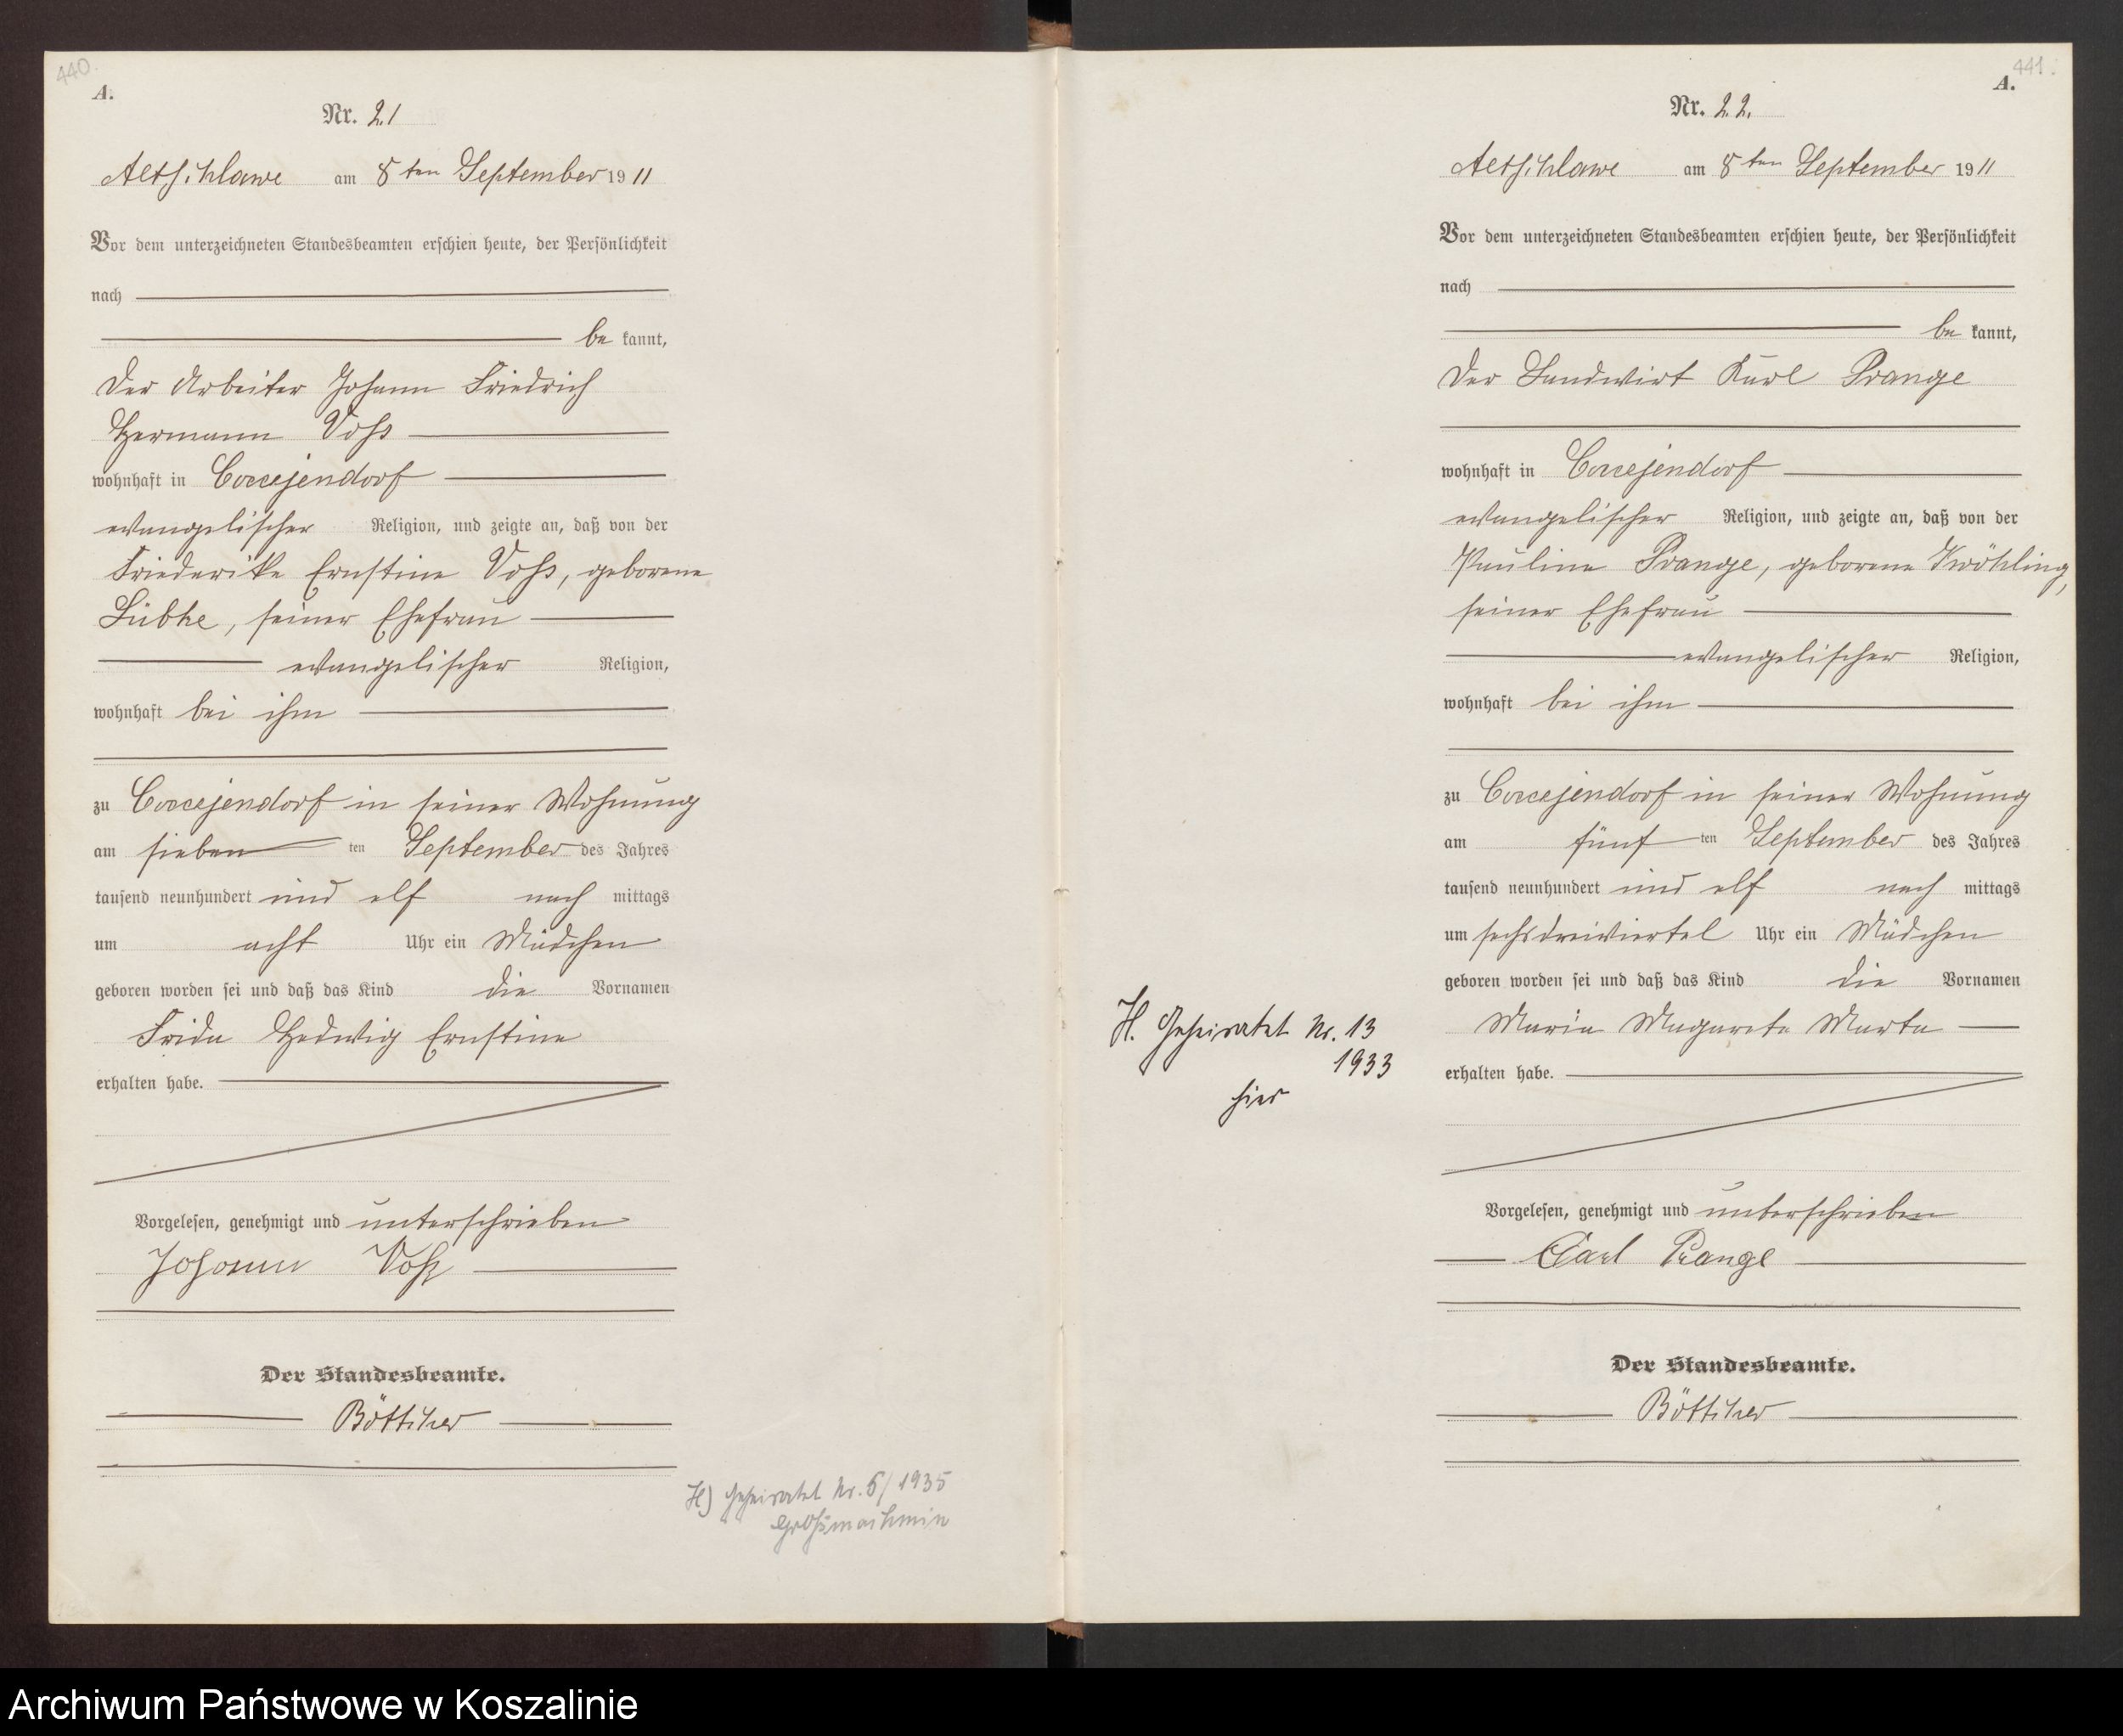 440.
A.
Nr. 21
Altschlawe am 8ten September 1911
Vor dem unterzeichneten Standesbeamten erschien heute, der Persönlichkeit
nach
be kannt,
der Arbeiter Johann Friedrich
Hermann Voß
wohnhaft in Coccejendorf
evangelischer Religion, und zeigte an, daß von der
Friederike Ernstine Voß, geborene
Lübke, seiner Ehefrau
evangelischer Religion,
wohnhaft bei ihm
zu Coccejendorf in seiner Wohnung
am sieben ten September des Jahres
tausend neunhundert und elf nach mittags
um acht Uhr ein Mädchen
geboren worden sei und daß das Kind die Vornamen
Frida Hedwig Ernstine
erhalten habe.
Vorgelesen, genehmigt und unterschrieben
Johann Voß
Der Standesbeamte.
Böttcher
H) Geheiratet Nr. 5/1935
Großmachmin
441.
A.
Nr. 22.
Altschlawe am 8ten September 1911
Vor dem unterzeichneten Standesbeamten erschien heute, der Persönlichkeit
nach
be kannt,
der Landwirt Karl Prange
wohnhaft in Coccejendorf
evangelischer Religion, und zeigte an, daß von der
Pauline Prange, geborene Kröhling,
seiner Ehefrau
evangelischer Religion,
wohnhaft bei ihm
zu Coccejendorf in seiner Wohnung
am fünf ten September des Jahres
tausend neunhundert und elf nach mittags
um sechsdreiviertel Uhr ein Mädchen
geboren worden sei und daß das Kind die Vornamen
Maria Magarete Marta
erhalten habe.
H. Geheiratet Nr. 13
1933
hier
Vorgelesen, genehmigt und unterschrieben
Carl Prange
Der Standesbeamte.
Böttcher
Archiwum Państwowe w Koszalinie